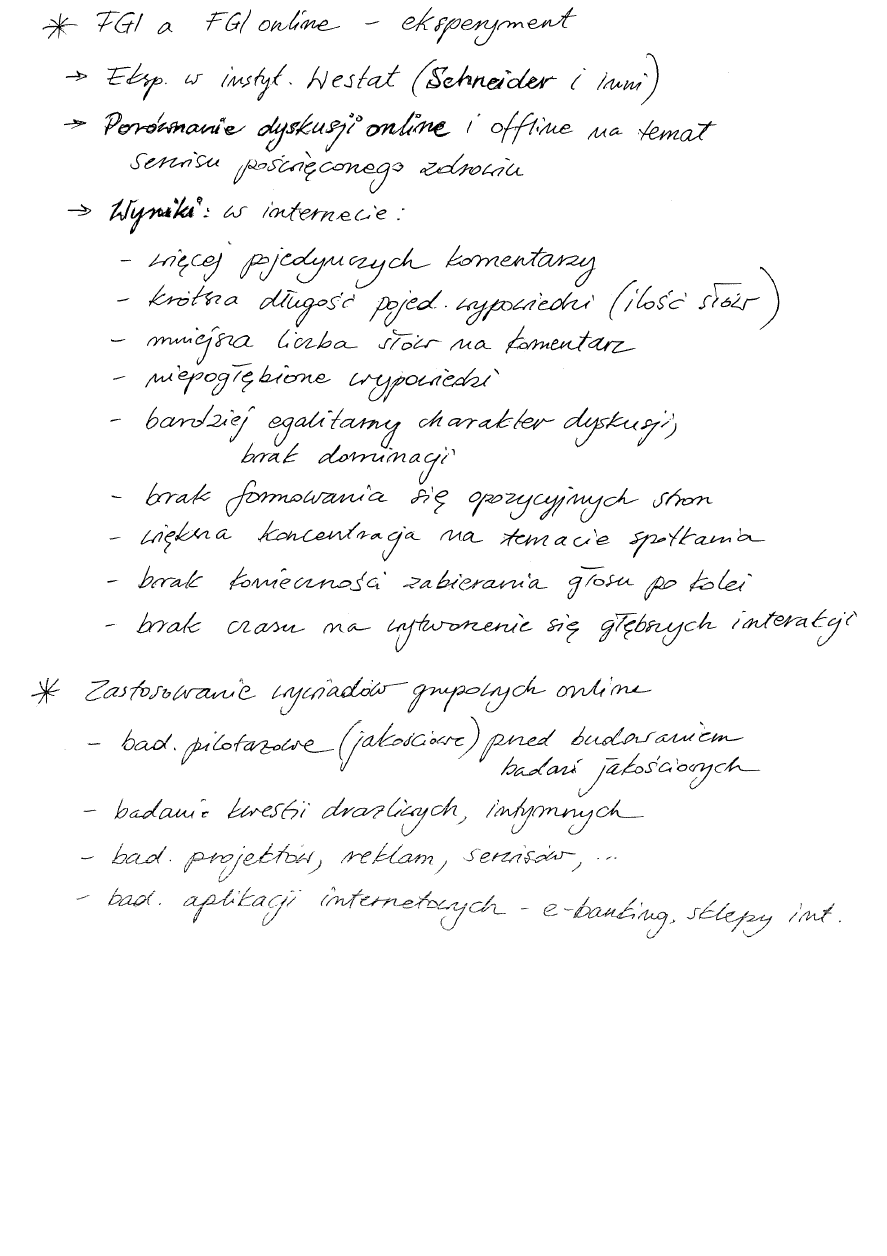 * FGI a FGI online - eksperyment
→ Eksp. w instyt. Westat (Schneider i inni)
→ Porównanie dyskusji online i offline na temat
serwisu poświęconego zdrowiu
→ Wyniki: w internecie:
- więcej pojedynczych komentarzy
- krótsza długość pojed. wypowiedzi (ilość słów)
- mniejsza liczba słów na komentarz
- niepogłębione wypowiedzi
- bardziej egalitarny charakter dyskusji,
brak dominacji
- brak formowania się opozycyjnych stron
- większa koncentracja na temacie spotkania
- brak konieczności zabierania głosu po kolei
- brak czasu na wytworzenie się głębszych interakcji
* Zastosowanie wywiadów grupowych online
- bad. pilotażowe (jakościowe) przed budowaniem
badań jakościowych
- badanie kwestii drażliwych, intymnych
- bad. projektów, reklam, serwisów, ...
- bad. aplikacji internetowych - e-banking, sklepy int.